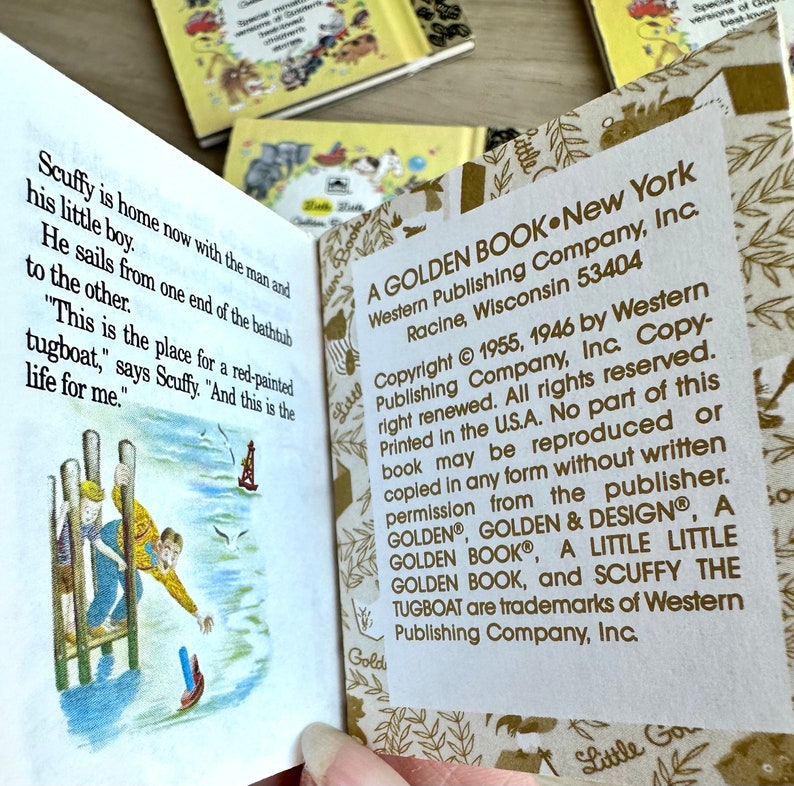 Special miniature
versions of Golden's
best-loved
children's
stories.
Special
versions of
best-loved
child
Little Little
Scuffy is home now with the man and
his little boy.
He sails from one end of the bathtub
to the other.
"This is the place for a red-painted
tugboat," says Scuffy. "And this is the
life for me."
A GOLDEN BOOK•New York
Western Publishing Company, Inc.
Racine, Wisconsin 53404
Copyright © 1955, 1946 by Western
Publishing Company, Inc. Copy-
right renewed. All rights reserved.
Printed in the U.S.A. No part of this
book may be reproduced or
copied in any form without written
permission from the publisher.
GOLDEN®, GOLDEN & DESIGN®, A
GOLDEN BOOK®, A LITTLE LITTLE
GOLDEN BOOK, and SCUFFY THE
TUGBOAT are trademarks of Western
Publishing Company, Inc.
Little
Little
Golde
Little Go